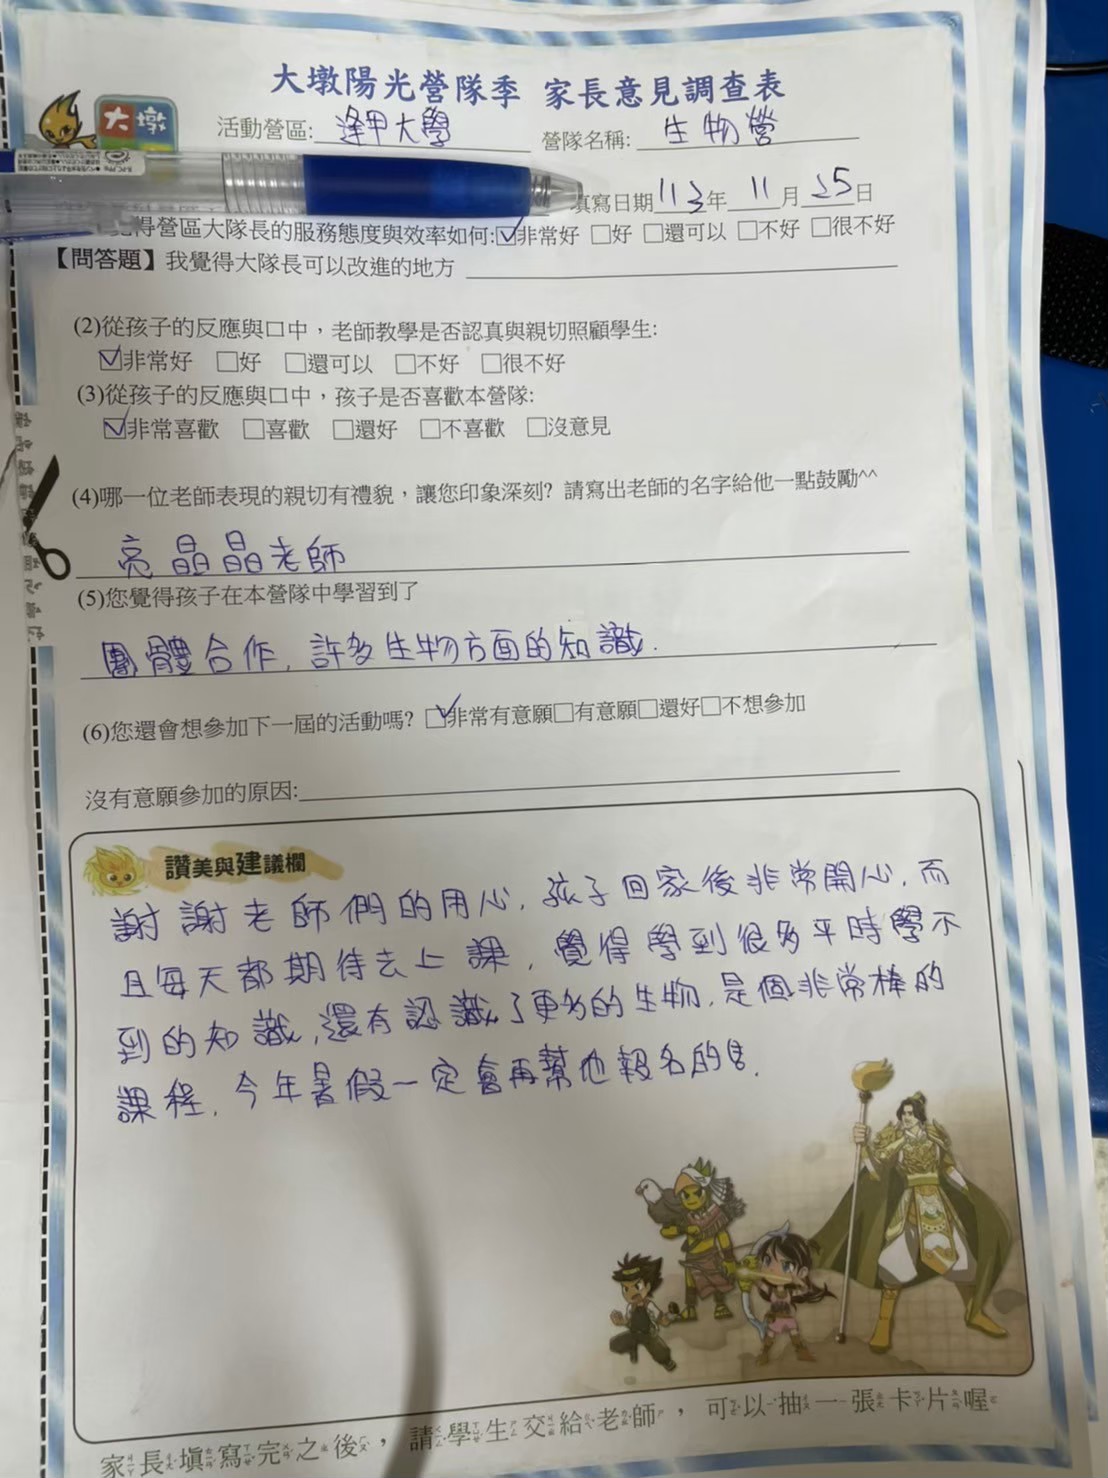 大墩陽光營隊季 家長意見調查表
大墩
活動營區: 逢甲大學 營隊名稱: 生物營
填寫日期113年 11月25日
得營區大隊長的服務態度與效率如何:☑非常好 □好 □還可以 □不好 □很不好
【問答題】我覺得大隊長可以改進的地方
(2)從孩子的反應與口中，老師教學是否認真與親切照顧學生:
☑非常好 □好 □還可以 □不好 □很不好
(3)從孩子的反應與口中，孩子是否喜歡本營隊:
☑非常喜歡 □喜歡 □還好 □不喜歡 □沒意見
(4)哪一位老師表現的親切有禮貌，讓您印象深刻? 請寫出老師的名字給他一點鼓勵^^
亮晶晶老師
(5)您覺得孩子在本營隊中學習到了
團體合作, 許多生物方面的知識.
(6)您還會想參加下一屆的活動嗎? ☑非常有意願□有意願□還好□不想參加
沒有意願參加的原因:
讚美與建議欄
謝謝老師們的用心, 孩子回家後非常開心, 而
且每天都期待去上課, 覺得學到很多平時學不
到的知識, 還有認識了更多的生物, 是個非常棒的
課程, 今年暑假一定會再幫他報名的
家長填寫完之後，請學生交給老師，可以抽一張卡片喔